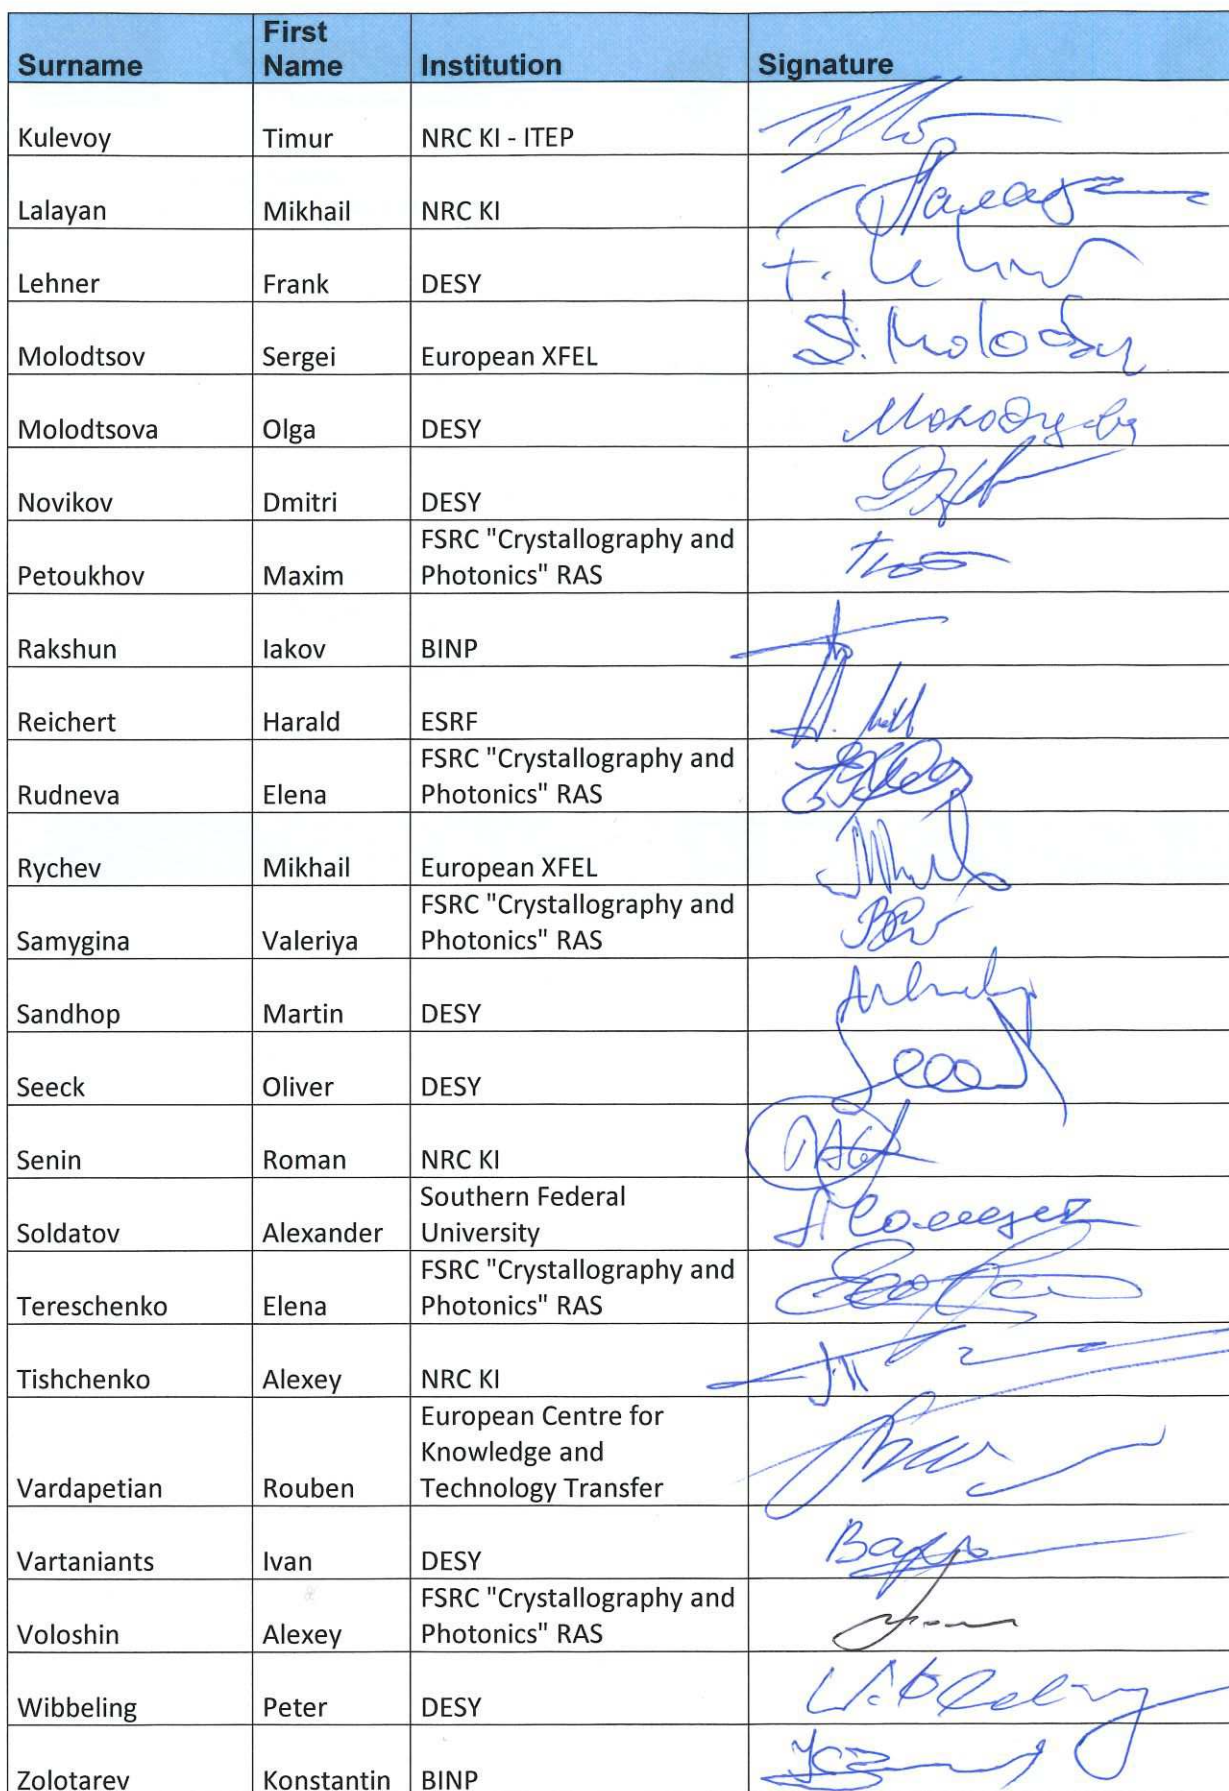 Surname First Name Institution Signature
Kulevoy Timur NRC KI - ITEP
Lalayan Mikhail NRC KI
Lehner Frank DESY F. Lehner
Molodtsov Sergei European XFEL S. Molodtsov
Molodtsova Olga DESY Молодцова
Novikov Dmitri DESY
Petoukhov Maxim FSRC "Crystallography and
Photonics" RAS
Rakshun Iakov BINP
Reichert Harald ESRF
Rudneva Elena FSRC "Crystallography and
Photonics" RAS
Rychev Mikhail European XFEL
Samygina Valeriya FSRC "Crystallography and
Photonics" RAS
Sandhop Martin DESY
Seeck Oliver DESY
Senin Roman NRC KI
Soldatov Alexander Southern Federal
University
Tereschenko Elena FSRC "Crystallography and
Photonics" RAS
Tishchenko Alexey NRC KI
Vardapetian Rouben European Centre for
Knowledge and
Technology Transfer
Vartaniants Ivan DESY
Voloshin Alexey FSRC "Crystallography and
Photonics" RAS
Wibbeling Peter DESY Wibbeling
Zolotarev Konstantin BINP